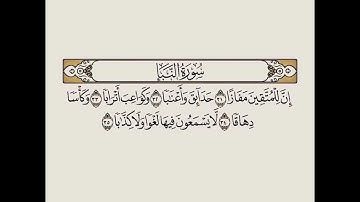 سُورَةُ النَّبَإِ
إِنَّ لِلْمُتَّقِينَ مَفَازًا ٣١ حَدَائِقَ وَأَعْنَابًا ٣٢ وَكَوَاعِبَ أَتْرَابًا ٣٣ وَكَأْسًا
دِهَاقًا ٣٤ لَّا يَسْمَعُونَ فِيهَا لَغْوًا وَلَا كِذَّابًا ٣٥